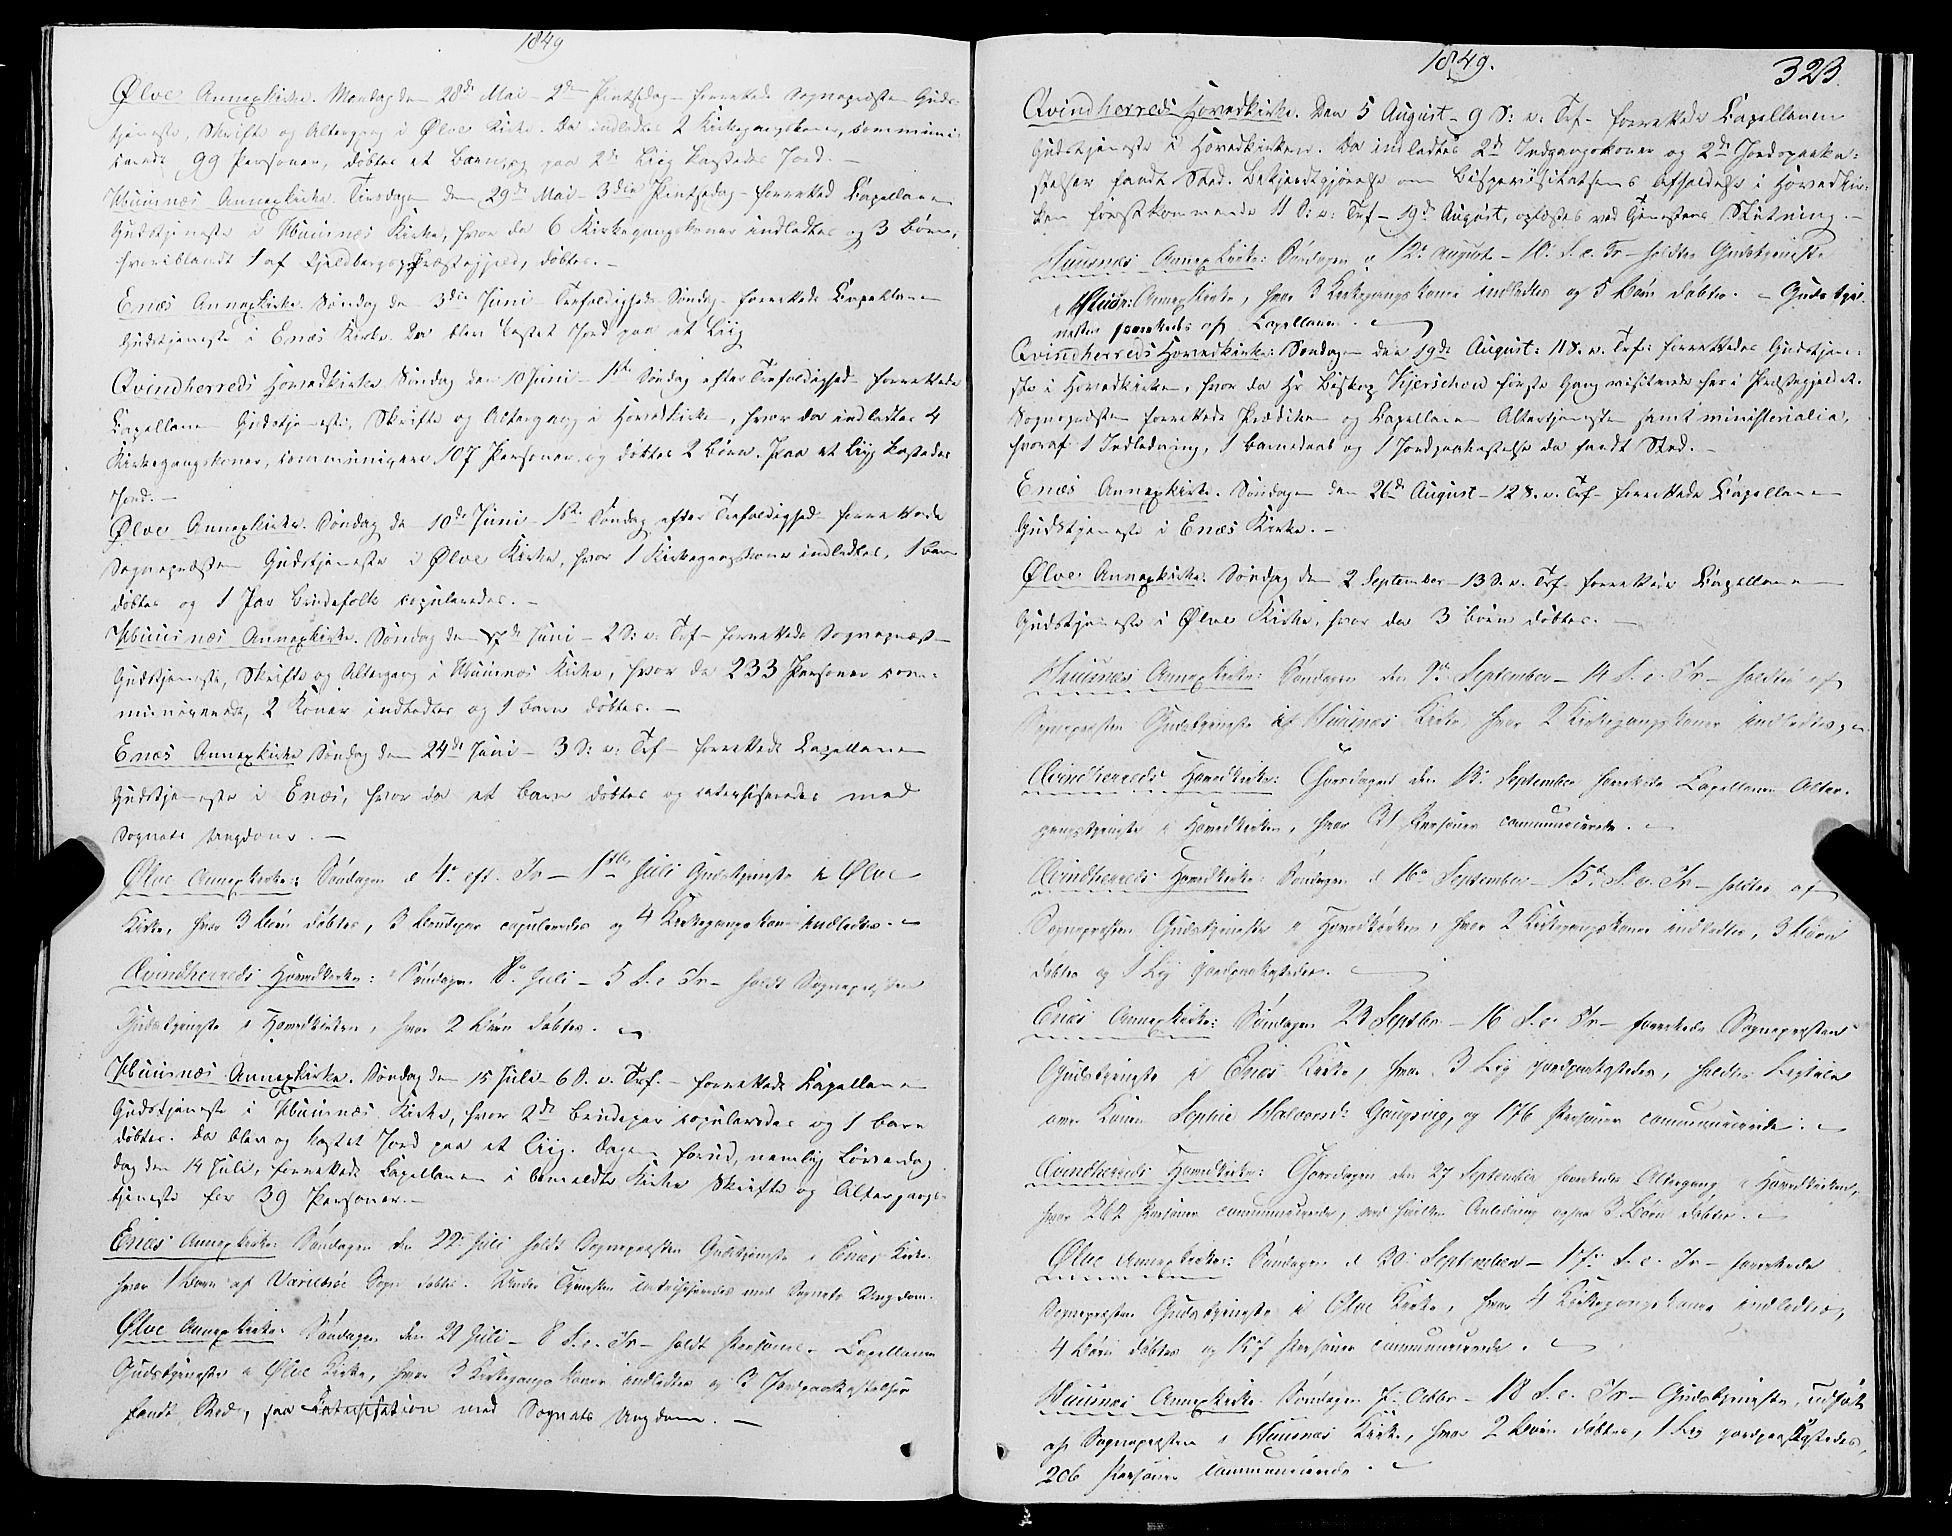 1849
Ølve Annexkirke. Mandag den 28de Mai - 2den Pintsedag - forrettede Sognepræsten Guds-
tjeneste, Skrifte og Altergang i Ølve Kirke. Da indledtes 2 Kirkegangskoner, communi-
cerede 99 Personer, døbtes et Barn, og paa 2de Liig kastedes Jord. -
Huusnæs Annexkirke. Tirsdagen den 29de Mai - 3die Pintsedag - forrettede Capellanen
Gudstjeneste i Huusnæs Kirke, hvor da 6 Kirkegangskoner indledtes og 3 Børn,
hvoriblandt 1 af Fjeldbergs Præstegjeld, døbtes. -
Enæs Annexkirke. Søndag den 3die Juni Trefoldigheds Søndag - forrettede Capellanen
Gudstjeneste i Enæs Kirke. Da blev kastet Jord paa et Liig
Qvindherreds Hovedkirke Søndag den 10 Juni - 1ste Søndag efter Trefoldighed - forrettede
Capellanen Gudstjeneste, Skrifte og Altergang i Hovedkirken, hvor da indledtes 4
Kirkegangskoner, communicere 107 Personer og døbtes 2 Børn. Paa et Liig kastedes
Jord. -
Ølve Annexkirke. Søndag den 10de Juni - 1ste Søndag efter Trefoldighed - forrettede
Sognepræsten Gudstjeneste i Ølve Kirke, hvor 1 Kirkegangskone indledtes, 1 Barn
døbtes og 1 Par Brudefolk copuleredes. -
Huusnæs Annexkirke. Søndag den 17de Juni - 2 S: e. Trf - forrettede Sognepræsten
Gudstjeneste, Skrifte og Altergang i Huusnæs Kirke, hvor da 233 Personer com-
municerede, 2 Koner indledtes og 1 Barn døbtes. -
Enæs Annexkirke Søndag den 24de Juni - 3 S: e: Trf - forrettede Capellanen
Gudstjeneste i Enæs, hvor da et Barn døbtes og catechiseredes med
Sognets Ungdom. -
Ølve Annexkirke: Søndagen d 4de eft. Tr - 1ste Juli Gudstjeneste i Ølve
Kirke, hvor 3 Børn døbtes, 3 Brudepar copuleredes og 4 Kirkegangskoner indledtes. -
Qvindherreds Hovedkirke: Søndagen 8de Juli - 5 S. e Tr - holdt Sognepræsten
Gudstjeneste i Hovedkirken, hvor 2 Børn døbtes. -
Huusnæs Annexkirke. Søndag den 15 Juli - 6 S. e. Trf. - forrettede Capellanen
Gudstjeneste i Huusnæs Kirke, hvor 2de Brudepar copuleredes og 1 Barn
døbtes. Da blev og kastet Jord paa et Liig. Dagen forud, nemlig Løverdag
dag den 14 Juli, forrettede Capellanen i bemeldte Kirke Skrifte og Altergangs-
tjeneste for 39 Personer. -
Enæs Annexkirke: Søndagen den 22de Juli holdt Sognepræsten Gudstjeneste i Enæs Kirke
hvor 1 Barn af Sogn døbtes. Under Tjenesten catechiseredes med Sognets Ungdom.
Ølve Annexkirke: Søndagen den 29 Juli - 8 S. e. Tr - holdt Capellanen
Gudstjeneste i Ølve Kirke, hvor 3 Kirkegangskoner indledtes og 3 Jordpaakastelser
fandt Sted, samt Catechisation med Sognets Ungdom. -
1849.
323
Qvindherreds Hovedkirke. Den 5 August - 9 S: e: Trf - forrettede Capellanen
Gudstjeneste i Hovedkirken. Da indledtes 2de Indgangskoner og 2de Jordspaaka-
stelser fandt Sted. Bekjendtgjørelse om Bispevisitatsens Afholdelse i Hovedkir-
ken førstkommende 11 S: e: Trf - 19de August, oplæstes ved Tjenestens Slutning. -
Huusnæs Annexkirke: Søndagen d 12de August - 10de S. e. Tr - holdtes Gudstjeneste
i Huusn: Annexkirke, hvor 3 Kirkegangskoner indledtes og 5 Børn døbtes. - Gudstje-
nesten forrettedes af Capellanen. -
Qvindherreds Hovedkirke: Søndagen den 19de August: 11 S. e. Trf: forrettedes Gudstjene-
ste i Hovedkirken, hvor da Hr Biskop Kjerschow første Gang visiterede her i Præstegjeldet.
Sognepræsten forrettede Prædiken og Capellanen Altertjenesten samt ministerialia,
hvoraf 1 Indledning, 1 Barnedaab og 1 Jordpaakastelse da fandt Sted. -
Enæs Annexkirke. Søndagen den 26de August - 12 S. e. Trf - forrettede Capellanen
Gudstjeneste i Enæs Kirke. -
Ølve Annexkirke: Søndag den 2 September - 13 S. e. Trf - forrettede Capellanen
Gudstjeneste i Ølve Kirke, hvor da 3 Børn døbtes. -
Huusnæs Annexkirke: Søndagen den 9de September - 14 S. e. Tr - holdtes af
Sognepræsten Gudstjeneste i Huusnæs Kirke, hvor 2 Kirkegangskoner indledtes
Qvindherreds Hovedkirke: Thorsdagen den 13de September forrettede Capellanen Alter-
gangstjeneste i Hovedkirken, hvor 31 Personer communicerede. -
Qvindherreds Hovedkirke: Søndagen d 16de September - 15de S. e. Tr - holdtes af
Sognepræsten Gudstjeneste i Hovedkirken, hvor 2 Kirkegangskoner indledtes, 3 Børn
døbtes og 1 Lig jordpaakastedes.
Enæs Annexkirke: Søndagen 23 Septbr - 16 S. e. Tr - forrettede Sognepræsten
Gudstjeneste i Enæs Kirke, hvor 3 Lig jordpaakastedes, holdtes Ligtale
over Konen Sophie Halvorsd: Gaugsvig, og 176 Personer communicerede. -
Qvindherreds Hovedkirke: Thorsdagen den 27 September forrettedes Altergang i Hovedkirken,
hvor 262 Personer communicerede, ved hvilken Anledning ogsaa 3 Børn døbtes. -
Ølve Annexkirke: Søndagen d 30de September - 17de S. e. Tr - forrettede
Sognepræsten Gudstjeneste i Ølve Kirke, hvor 4 Kirkegangskoner indledtes,
4 Børn døbtes og 157 Personer communicerede. -
Huusnæs Annexkirke. Søndagen 7de Octbr - 18 S. e. Tr - Gudstjeneste, udført
af Sognepræsten i Huusnæs Kirke, hvor 2 Børn døbtes, 1 Lig jordpaakastedes,
206 Personer communicerede. -